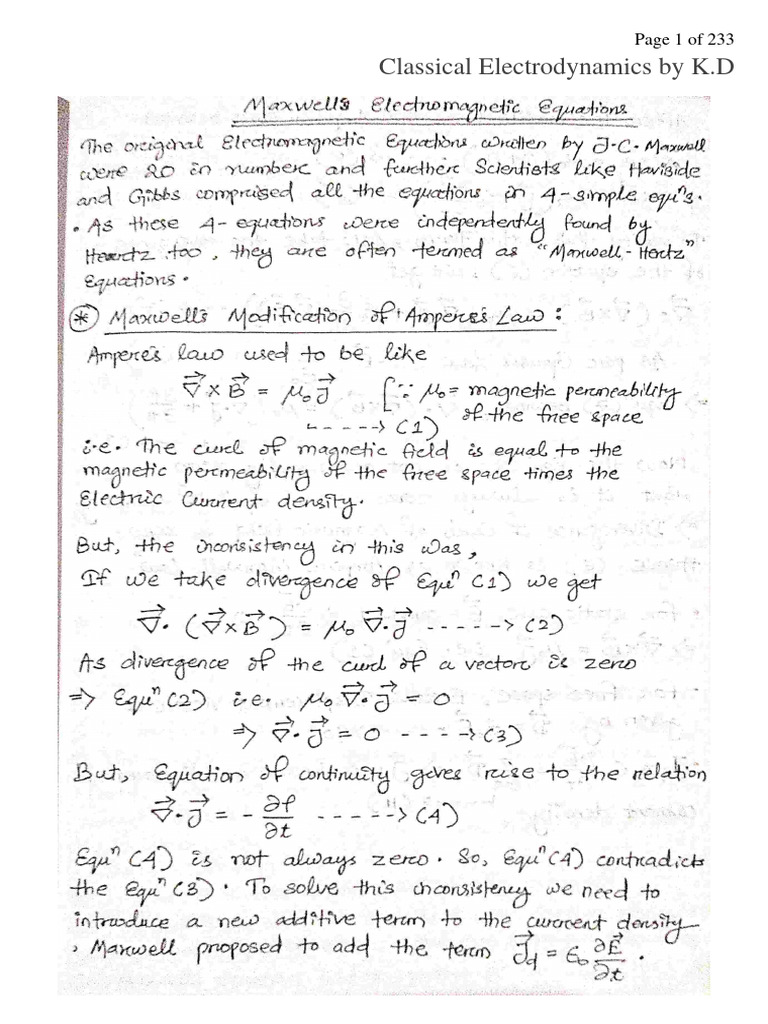 Page 1 of 233
Classical Electrodynamics by K.D
Maxwell's Electromagnetic Equations
The original Electromagnetic Equations written by J.C. Maxwell
were 20 in number and further Scientists like Haviside
and Gibbs comprised all the equations in 4-simple equⁿs.
• As these 4-equations were independently found by
Heartz too, they are often termed as "Maxwell-Hertz"
Equations.
(*) Maxwell's Modification of Ampere's Law :
Ampere's law used to be like
∇⃗ × B⃗ = μ₀ J⃗ [∵ μ₀ = magnetic permeability
of the free space
-----> (1)
i.e. The curl of magnetic field is equal to the
magnetic permeability of the free space times the
Electric Current density.
But, the inconsistency in this was,
If we take divergence of Equⁿ (1) we get
∇⃗. (∇⃗ × B⃗) = μ₀ ∇⃗. J⃗ -----> (2)
As divergence of the curl of a vector is zero
=> Equⁿ (2) i.e. μ₀ ∇⃗. J⃗ = 0
=> ∇⃗. J⃗ = 0 ----> (3)
But, Equation of continuity gives rise to the relation
∇⃗. J⃗ = - ∂ρ/∂t -----> (4)
Equⁿ (4) is not always zero. So, Equⁿ (4) contradicts
the Equⁿ (3). To solve this inconsistency we need to
introduce a new additive term to the current density
, Maxwell proposed to add the term J⃗d = ε₀ ∂E⃗/∂t .